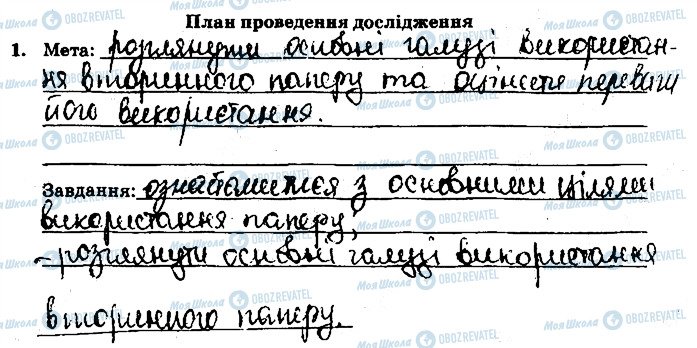 План проведення дослідження
1. Мета: розглянути основні галузі використан-
ня вторинного паперу та оцінсти переваги
його використання.
Завдання: ознайомитися з основними цілями
використання паперу;
- розглянути основні галузі використання
вторинного паперу.